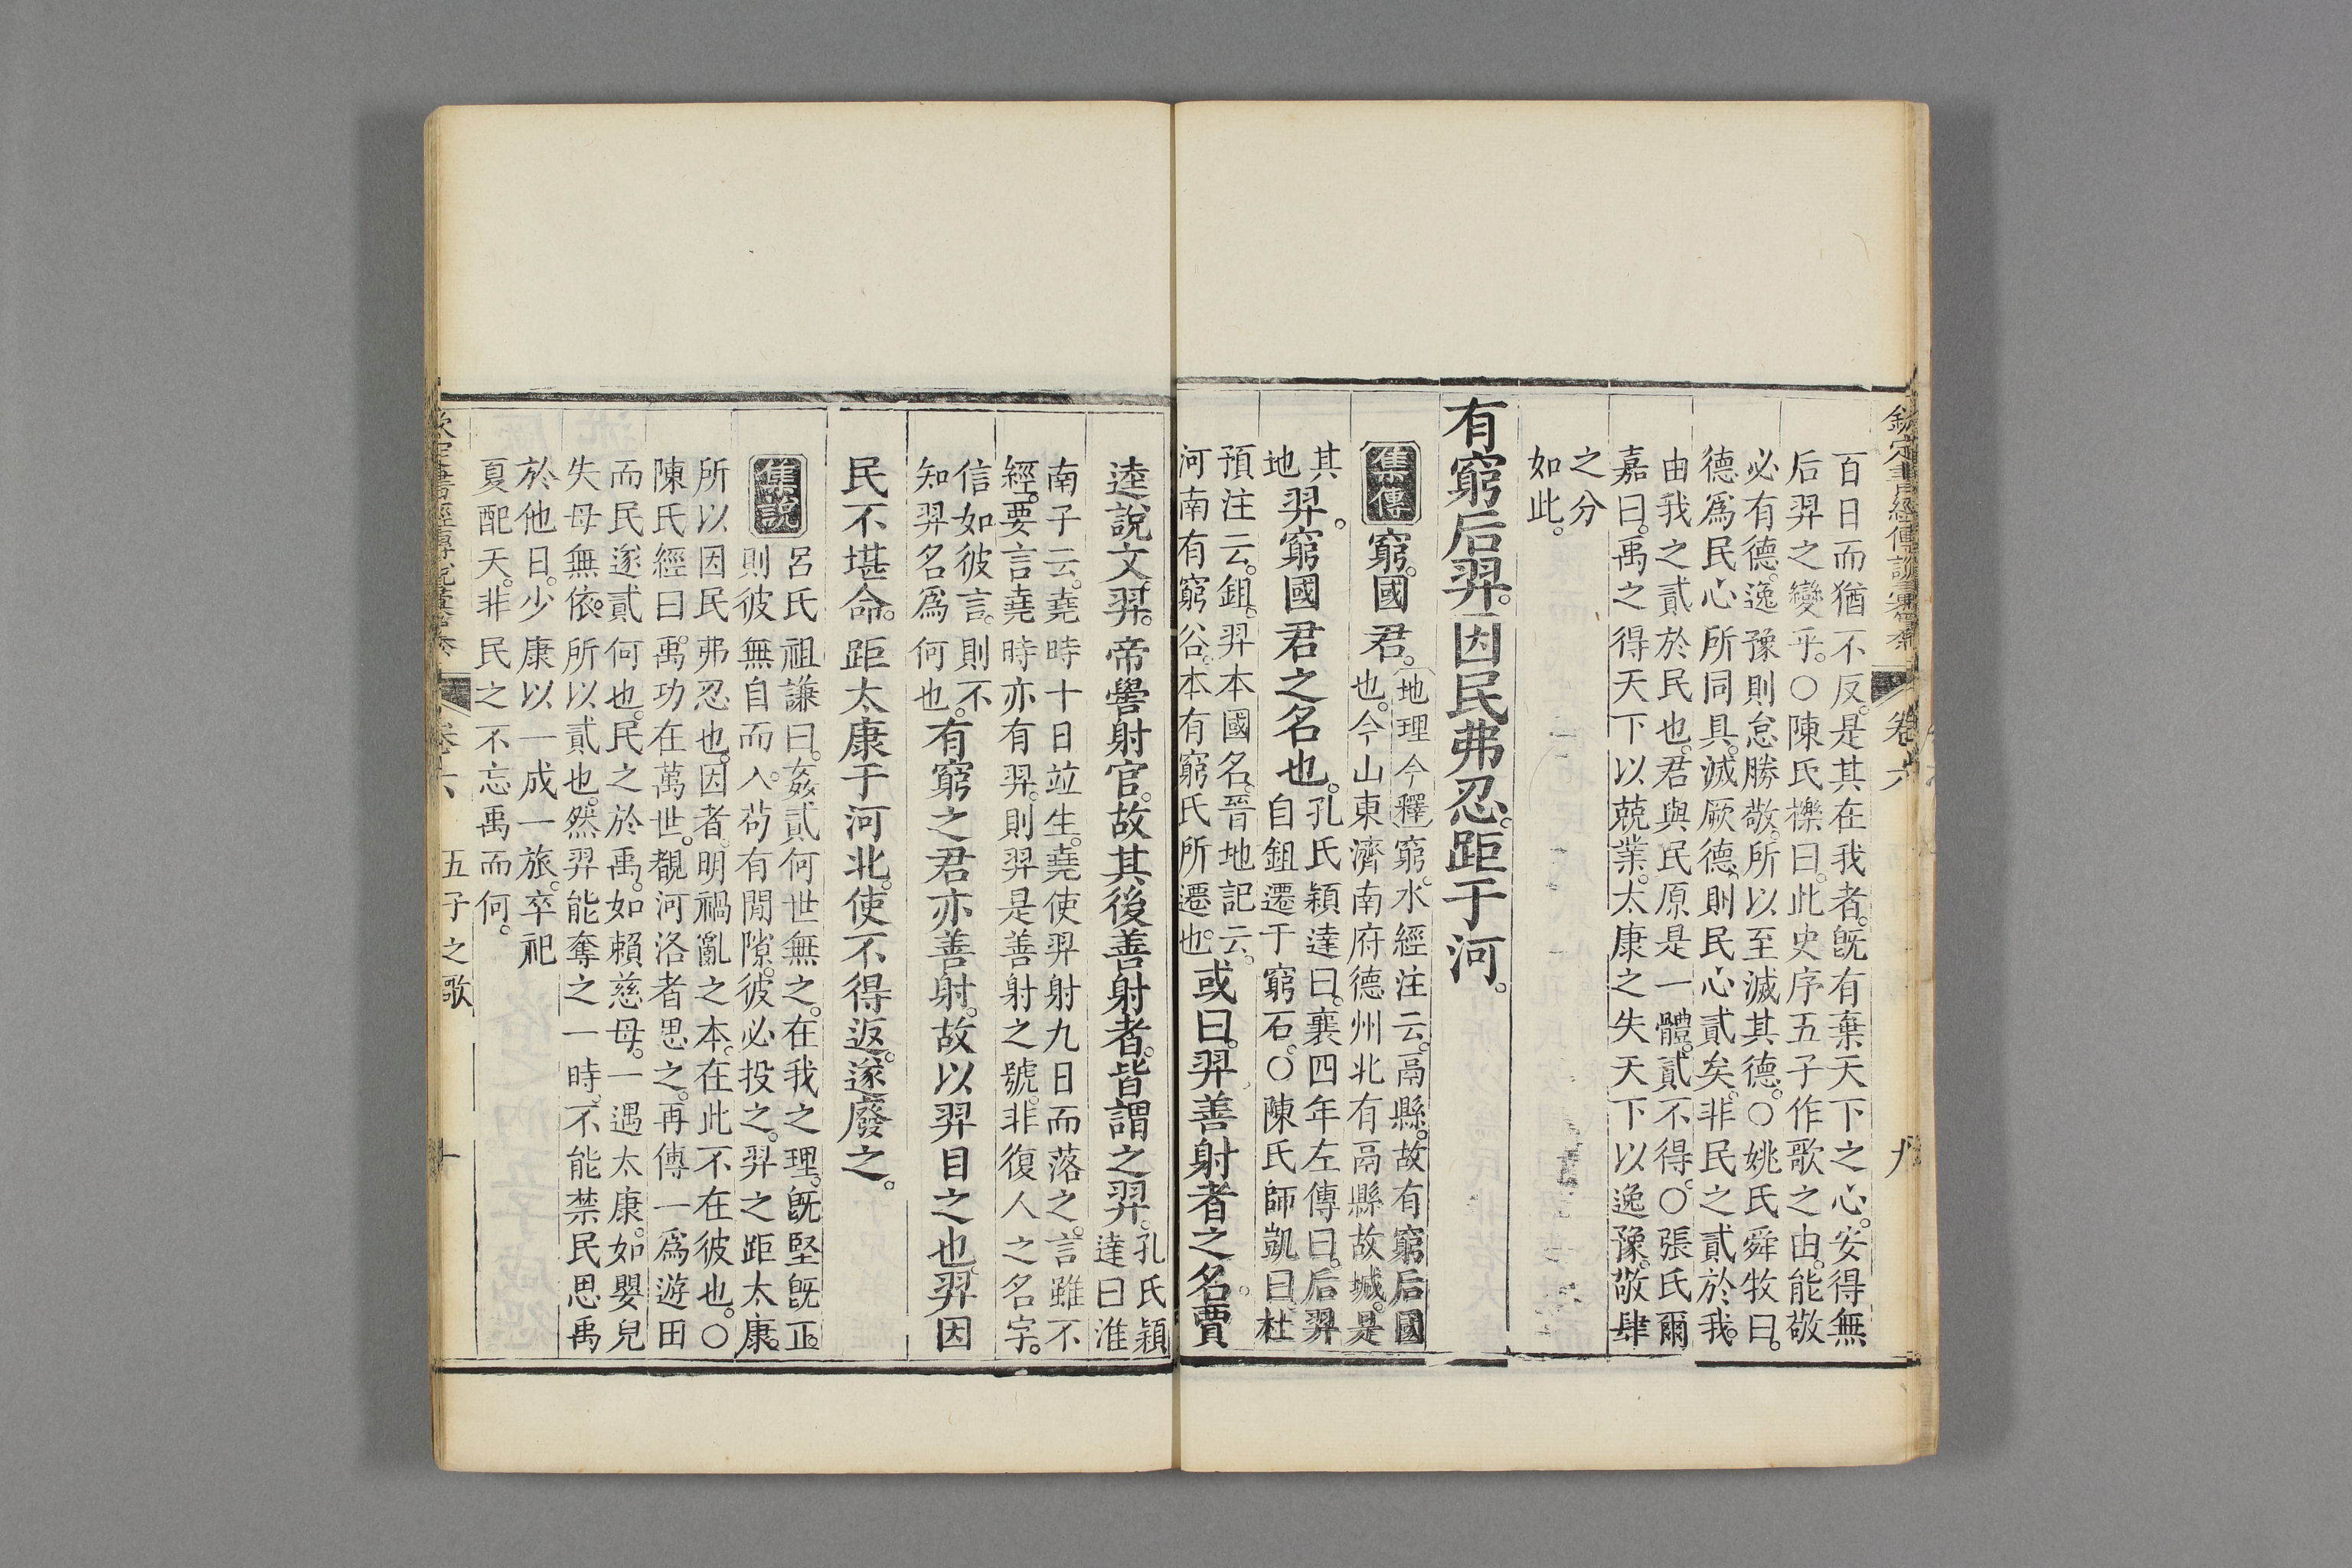 百日而猶不反。是其在我者。旣有棄天下之心。安得無
后羿之變乎。○陳氏櫟曰。此史序五子作歌之由。能敬
必有德。逸豫則怠勝敬。所以至滅其德。○姚氏舜牧曰。
德爲民心所同具。滅厥德。則民心貳矣。非民之貳於我。
由我之貳於民也。君與民原是一體。貳不得。○張氏爾
嘉曰。禹之得天下以兢業。太康之失天下以逸豫。敬肆
之分
如此。
有窮后羿。因民弗忍。距于河。
集傳 窮。國君。
地理今釋 窮。水經注云。鬲縣。故有窮后國
也。今山東濟南府德州北有鬲縣故城。是
其
地
羿。窮國君之名也。
孔氏穎達曰。襄四年左傳曰。后羿
自鉏遷于窮石。○陳氏師凱曰。杜
預注云。鉏。羿本國名。晉地記云。
河南有窮谷。本有窮氏所遷也。
或曰。羿善射者之名。賈
逵說文。羿。帝嚳射官。故其後善射者。皆謂之羿。
孔氏穎
達曰淮
南子云。堯時十日竝生。堯使羿射九日而落之。言雖不
經。要言堯時亦有羿。則羿是善射之號。非復人之名字。
信如彼言。則不
知羿名爲何也。
有窮之君亦善射。故以羿目之也。羿因
民不堪命。距太康于河北。使不得返。遂廢之。
集說
呂氏祖謙曰。姦貳何世無之。在我之理。旣堅旣正。
則彼無自而入。苟有閒隙。彼必投之。羿之距太康。
所以因民弗忍也。因者。明禍亂之本。在此不在彼也。○
陳氏經曰。禹功在萬世。覩河洛者思之。再傳一爲遊田
而民遂貳何也。民之於禹。如賴慈母。一遇太康。如嬰兒
失母無依。所以貳也。然羿能奪之一時。不能禁民思禹
於他日。少康以一成一旅。卒祀
夏配天。非民之不忘禹而何。
卷六 五子之歌